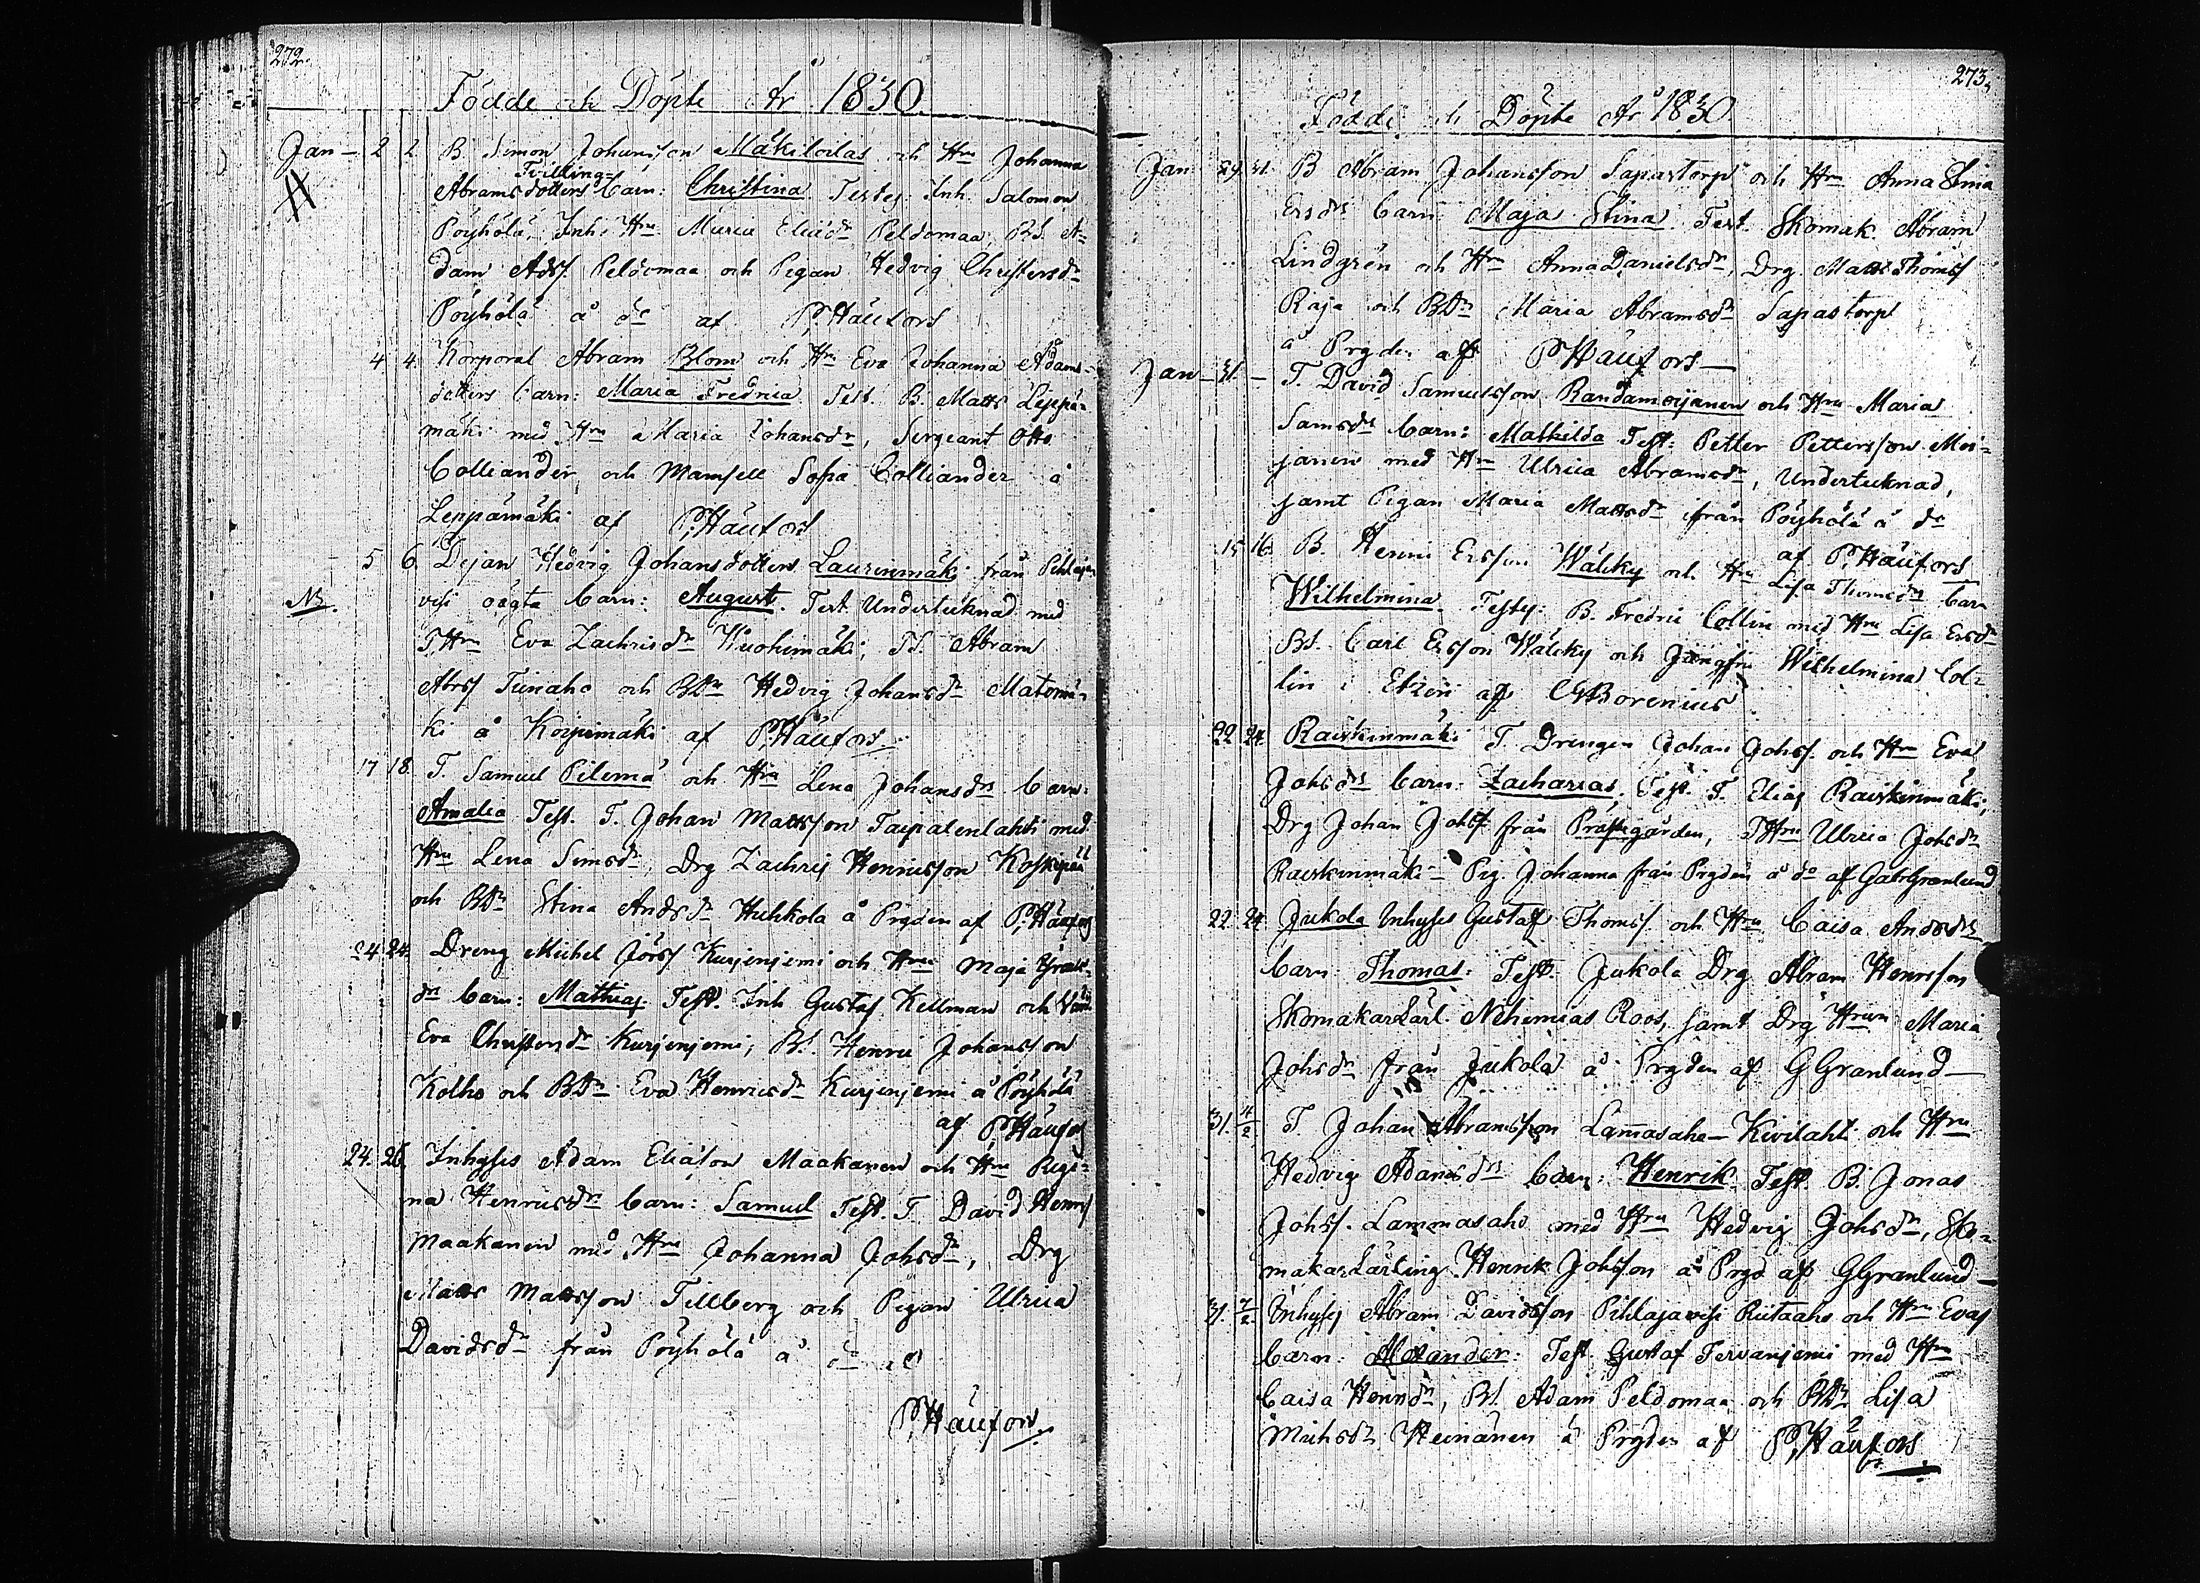 272.
Födde och Döpte År 1830
Jan - 2 2 B. Simon Johansson Mäkiloilas och Hru Johanna
Tvilling=
Abramsdotters barn: Christina. Testes. Inh. Salomon
Pöyhölä, Inh. Hru Maria Eliædr Peldomaa, BS. A=
dam Adss Peldomaa och Pigan Hedvig Christersdr
Pöyhölä å do af P. Häufors
4 4. Korporal Abram Blom och Hru Eva Johanna Adams=
dotters barn: Maria Fredrica Test. B. Matts Leppä=
mäki med Hru Maria Johansdr, Sergeant Otto
Colliander, och Mamsell Sofia Colliander å
Leppämäki af P. Häufors
5 6. Pigan Hedvig Johansdotters Laurinmäki från Pihlaja
NB. visi oägta barn: August. Test. Undertecknad med
T.Hru Eva Zachrisdr Wuohimäki, TS. Abram
Abrss Tiinaho och BDr Hedvig Johansdr Matomä=
ki å Korpimäki af P. Häufors
17 18. T. Samuel Pilema och Hru Lena Johansdrs barn:
Amalia Test. T. Johan Mattsson Taipalenlahti med
Hru Lena Simsdr, Drg Zachris Henricsson Koskipää
och BDr Stina Andsdr Huhkola å Prgden af P. Häufors
24 24. Dreng Michel Jörss Kurjenjemi och Hru Maja
drs barn: Mathias. Test. Inh Gustaf Kellman och
Eva Christersdr Kurjenjemi, BS. Henric Johansson
Kolho och BDr Eva Henricsdr Kurjenjemi å Pöyhölä
af P. Häufors
24. 26. Inhyses Adam Eliæson Maakanen och Hru Regi=
na Henricsdrs barn: Samuel Test. T. David Henrss
Maakanen med Hru Johanna Johsdr, Drg
Matts Mattsson Tillberg och Pigan Ulrica
Davidsdr från Pöyhölä å do af
P. Häufors.
273.
Födde och Döpte År 1830
Jan 29. 31. B Abram Johansson Sapastorp och Hru Anna Stina
Ersdrs barn Maja Stina. Test. Skomak. Abram
Lindgrén och Hru Anna Danielsdr, Drg. Matts Thomss
Raja och BDr Maria Abramsdr Sapastorp
å Prgden af P. Häufors
Jan - 31. - T. David Samuelsson Randamoijanen och Hru Maria
Samsdrs barn: Mathilda Test: Petter Pettersson Moi=
janen med Hru Ulrica Abramsdr, Undertecknad,
samt Pigan Maria Mattsdr ifrån Pöyhölä å do
af P. Häufors
15 16. B. Henric Ersson Wälcky och Hru Lisa Thomsdrs barn
Wilhelmina. Testes: B. Fredric Collin med Hru Lisa Ersdr
BS. Carl Ersson Wälcky och Jungfru Wilhelmina Col=
lin i Etzeri af CGBorenius
22 24. Raiskinmäki T. Drengen Johan Johss. och Hru Eva
Johsdrs barn: Zacharias. Test. T. Elias Raiskinmäki,
Drg Johan Johss från Prästgården, THru Ulrica Johsdr
Raiskinmäki - Pig. Johanna från Prgden å do af Gabr Granlund
22. 24. Jukola Inhyses Gustaf Thomss. och Hru Caisa Andsdrs
barn: Thomas: Test. Jukola Drg Abram Henrsson
Skomakarlärl. Nehemias Roos, samt Drg Hrun Maria
Johsdr från Jukola å Prgden af G Granlund
31. 4/2 T. Johan Abramsson Lamasaho - Kivilahti och Hru
Hedvig Adamsdrs barn: Henrik. Test. B. Jonas
Johss. Lammasaho med Hru Hedvig Johsdr, Sko=
makarLärling Henrik Johsson å Prgd af GGranlund
31. 7/2 Inhyses Abram Davidsson Pihlajavisi Riitaaho och Hru Evas
barn: Alexander: Test. Gustaf Tervanjemi med Hru
Caisa Henrdr, BS. Adam Peldomaa och BDr Lisa
Michsdr Heinänen å Prgden af P. Häufors.